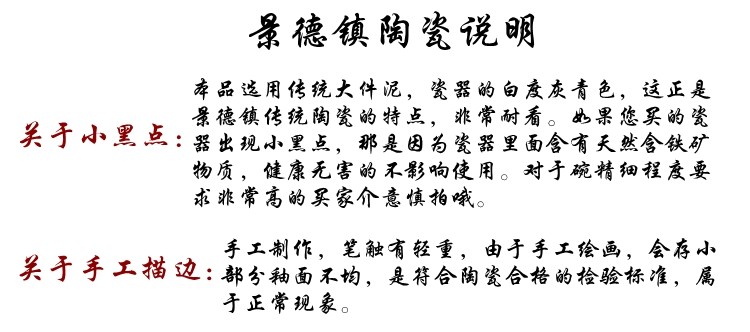 景德镇陶瓷说明
关于小黑点：
本品选用传统大件泥，瓷器的白度灰青色，这正是
景德镇传统陶瓷的特点，非常耐看。如果您买的瓷
器出现小黑点，那是因为瓷器里面含有天然含铁矿
物质，健康无害的不影响使用。对于碗精细程度要
求非常高的买家介意慎拍哦。
关于手工描边：
手工制作，笔触有轻重，由于手工绘画，会存小
部分釉面不均，是符合陶瓷合格的检验标准，属
于正常现象。